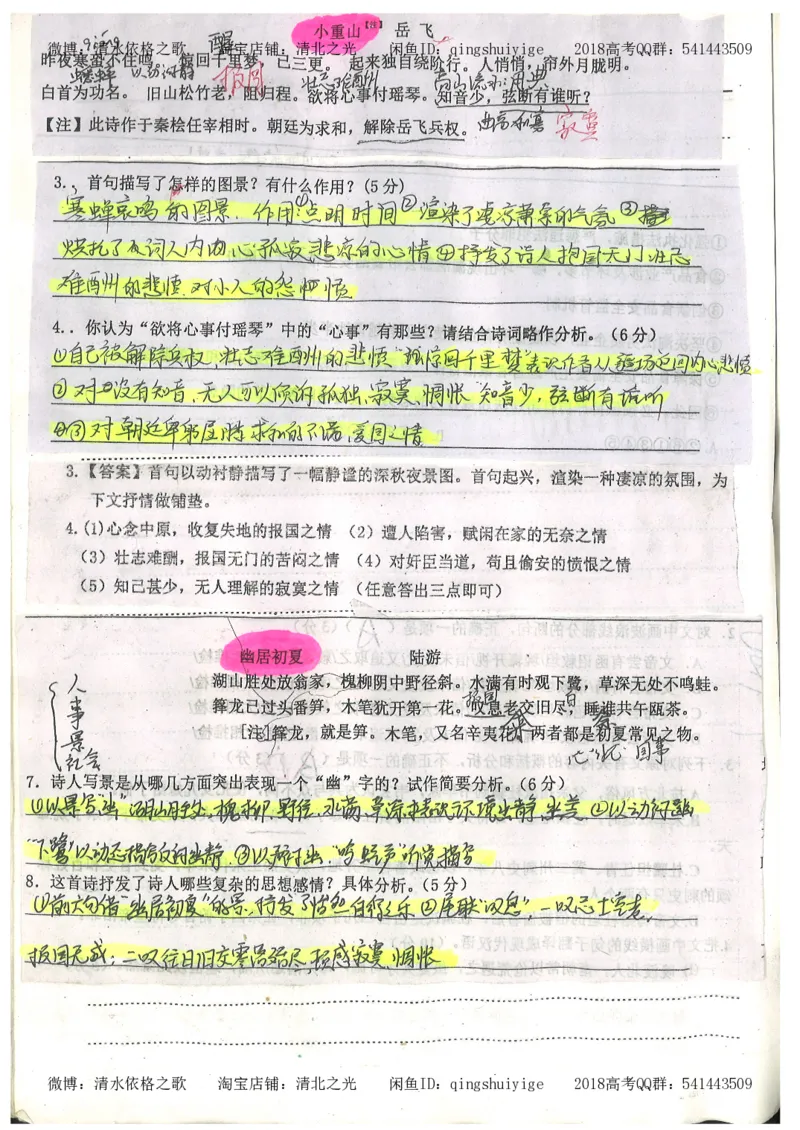 小重山【注】 岳 飞
微博：清水依格之歌 淘宝店铺：清北之光 闲鱼ID：qingshuiyige 2018高考QQ群：541443509
昨夜寒蛩不住鸣。惊回千里梦，已三更。 起来独自绕阶行。人悄悄，帘外月胧明。
蟋蟀 以动衬静 报国 壮志难酬 高山流水用典
白首为功名。 旧山松竹老，阻归程。欲将心事付瑶琴。知音少，弦断有谁听？
【注】此诗作于秦桧任宰相时。朝廷为求和，解除岳飞兵权。 曲高和寡 寂寞
3.、首句描写了怎样的图景？有什么作用？(5 分)
寒蝉哀鸣的图景. 作用:①点明时间②渲染了凄凉萧条的气氛③
烘托了词人内心孤寂,悲凉的心情④抒发了诗人报国无门壮志
难酬的悲愤,对小人的怨愤
4.. 你认为“欲将心事付瑶琴”中的“心事”有那些？请结合诗词略作分析。(6 分)
①自己被解除兵权,壮志难酬的悲愤"惊回千里梦"表现作者从疆场返回内心悲愤
②对没有知音,无人可以倾诉孤独、寂寞、惆怅"知音少,弦断有谁听
③对朝廷卑躬屈膝求和的不满,爱国之情
3.【答案】首句以动衬静描写了一幅静谧的深秋夜景图。首句起兴，渲染一种凄凉的氛围，为
下文抒情做铺垫。
4.(1)心念中原，收复失地的报国之情 （2）遭人陷害，赋闲在家的无奈之情
（3）壮志难酬，报国无门的苦闷之情 （4）对奸臣当道，苟且偷安的愤恨之情
（5）知己甚少，无人理解的寂寞之情 （任意答出三点即可）
幽居初夏 陆游
湖山胜处放翁家，槐柳阴中野径斜。水满有时观下鹭，草深无处不鸣蛙。
箨龙已过头番笋，木笔犹开第一花。叹息老来交旧尽，睡起谁共午瓯茶。
[注]箨龙，就是笋。木笔，又名辛夷花，两者都是初夏常见之物。
人
事
景
社会
7．诗人写景是从哪几方面突出表现一个“幽”字的？试作简要分析。(6 分)
①以景写幽"湖山胜处,槐柳,野径,水满,草深"表现环境幽静,幽美 ②以动衬幽
"下鹭"以动态描写反衬幽静.③以声衬幽,"鸣蛙声"听觉描写
8．这首诗抒发了诗人哪些复杂的思想感情？具体分析。(5 分)
①前六句借"幽居初夏"的景,抒发了悠然自得之乐 ②尾联"叹息",一叹志士空老,
报国无成；二叹往日旧友零落殆尽,颇感寂寞,惆怅
微博：清水依格之歌 淘宝店铺：清北之光 闲鱼ID：qingshuiyige 2018高考QQ群：541443509